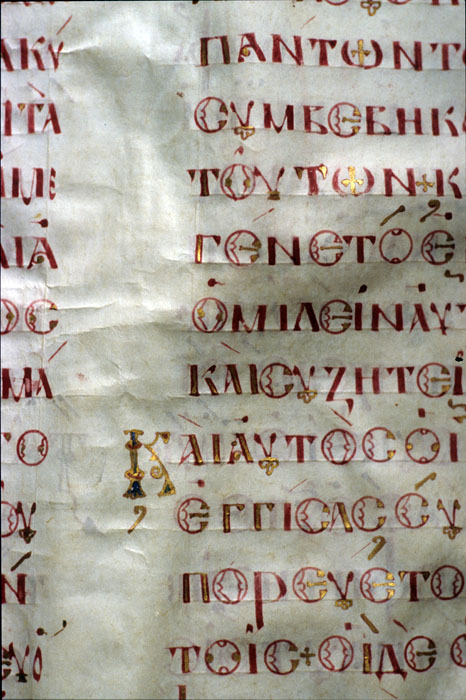 ΑΚΥ
ΤΑ
ΜΕ
ΙΑ
ΟC
ΜΑ
ΤΟ
ΟΥ
Ν
ΠΑΝΤΩΝΤΩ
CΥΜΒΕΒΗΚ
ΤΟΥΤΩΝ+Κ
ΓΕΝΕΤΟΕ
ΟΜΙΛΕΙΝΑΥ
ΚΑΙCΥΖΗΤΕΙ
ΚΑΙΑΥΤΟCΟΙ
ΕΓΓΙCΑCCΥ
ΠΟΡΕΥΕΤΟ
ΤΟΙC+ΟΙΔΕ